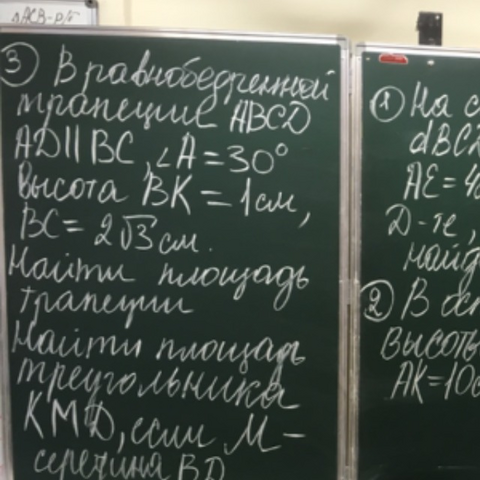 ③ В равнобедренной
трапеции ABCD
AD||BC, ∠A = 30°
высота BK = 1см,
BC = 2√3 см.
Найти площадь
трапеции
Найти площадь
треугольника
KMD, если M –
середина BD
① На
AE = 4
Д-те,
② В
высоты
AK = 10